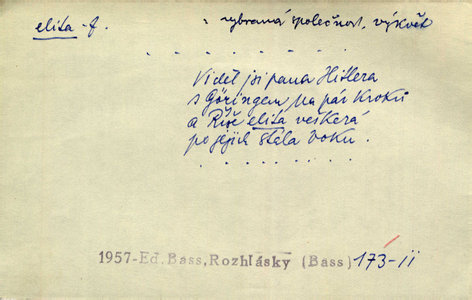 elita -f. : vybraná společnost, výkvět
. . . . . . . . .
Viděl jsi pana Hitlera
s Göringem na pár kroků
a Říše elita veškerá
po jejich stála boku.
. . . . . . .
1957-Ed.Bass,Rozhlásky (Bass) 173-ii